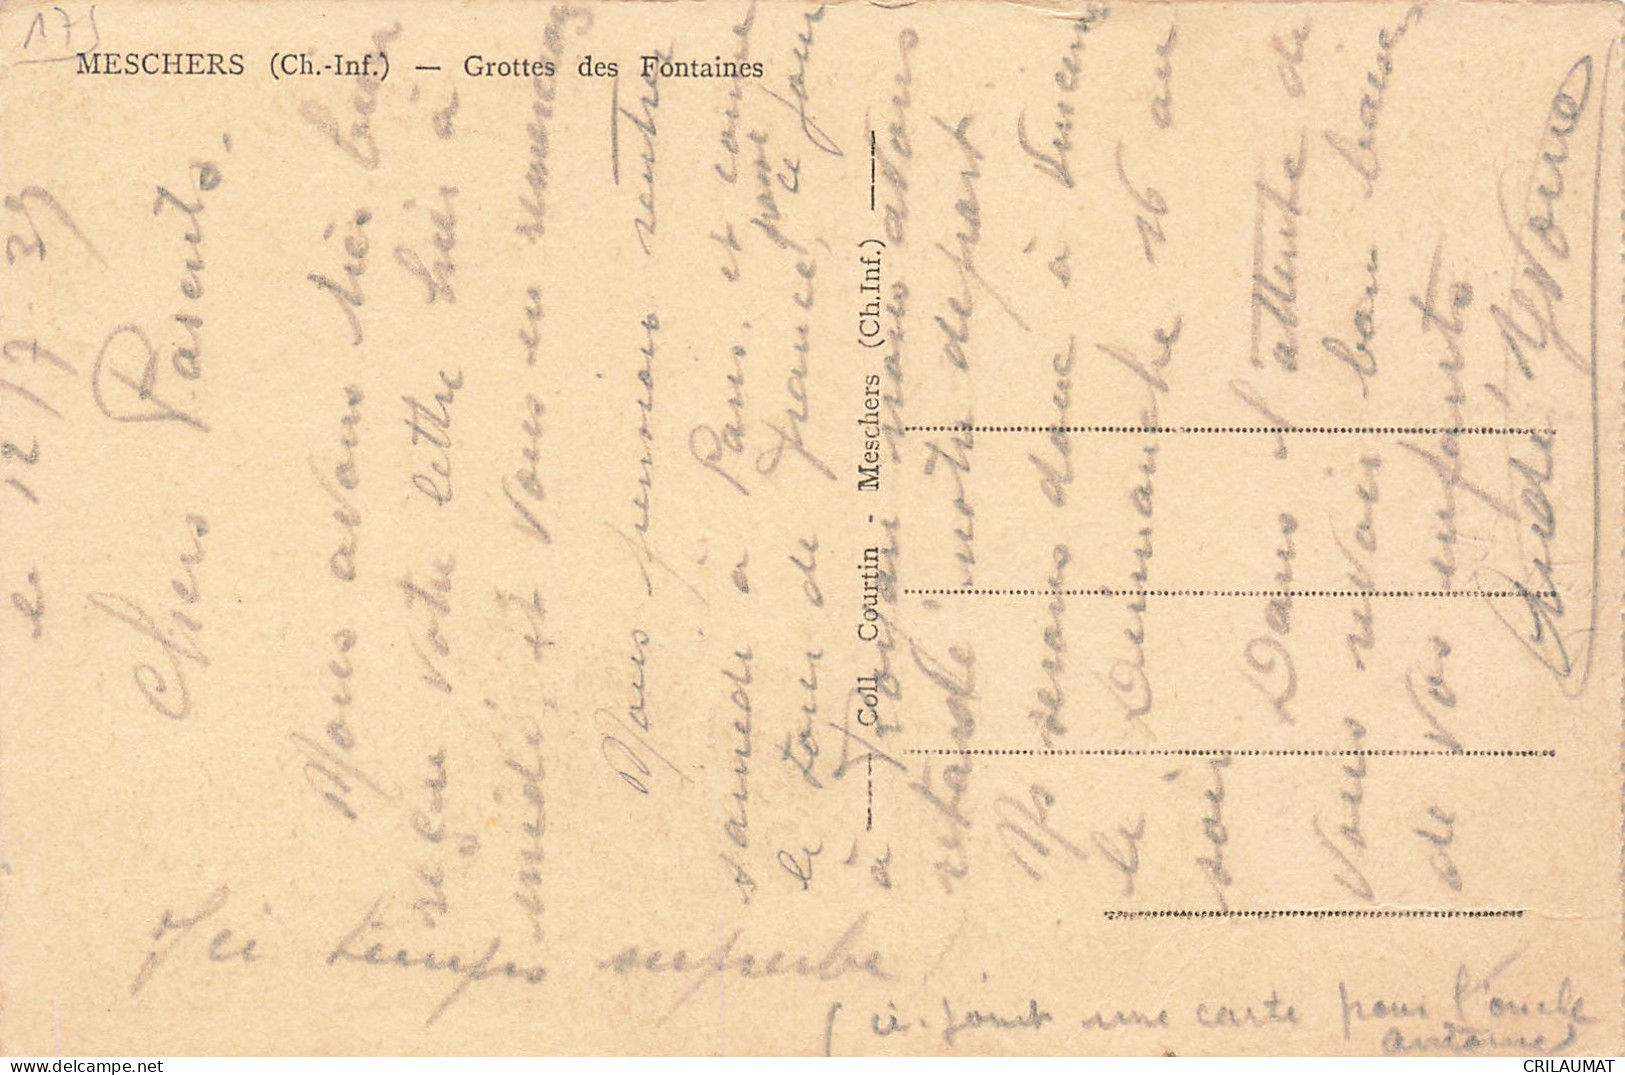 175
MESCHERS (Ch.-Inf.) — Grottes des Fontaines
le 12/7 35
Chers Parents.
Nous avons bien
reçu votre lettre hier à
midi, et vous en remercions
Nous pensions rentrer
samedi à Paris. et comme
le tour de France, passe ce jour
à Royan nous avons
retardé notre départ
Ns serons donc à Vincennes
le Dimanche 16 au
soir
Dans l'attente de
vous revoir bon baisers
de vos enfants
André Yvonne
Ici temps superbe
(ci-joint une carte pour l'oncle
antoine)
Coll. Courtin - Meschers (Ch.Inf.)
delcampe.net
CRILAUMAT